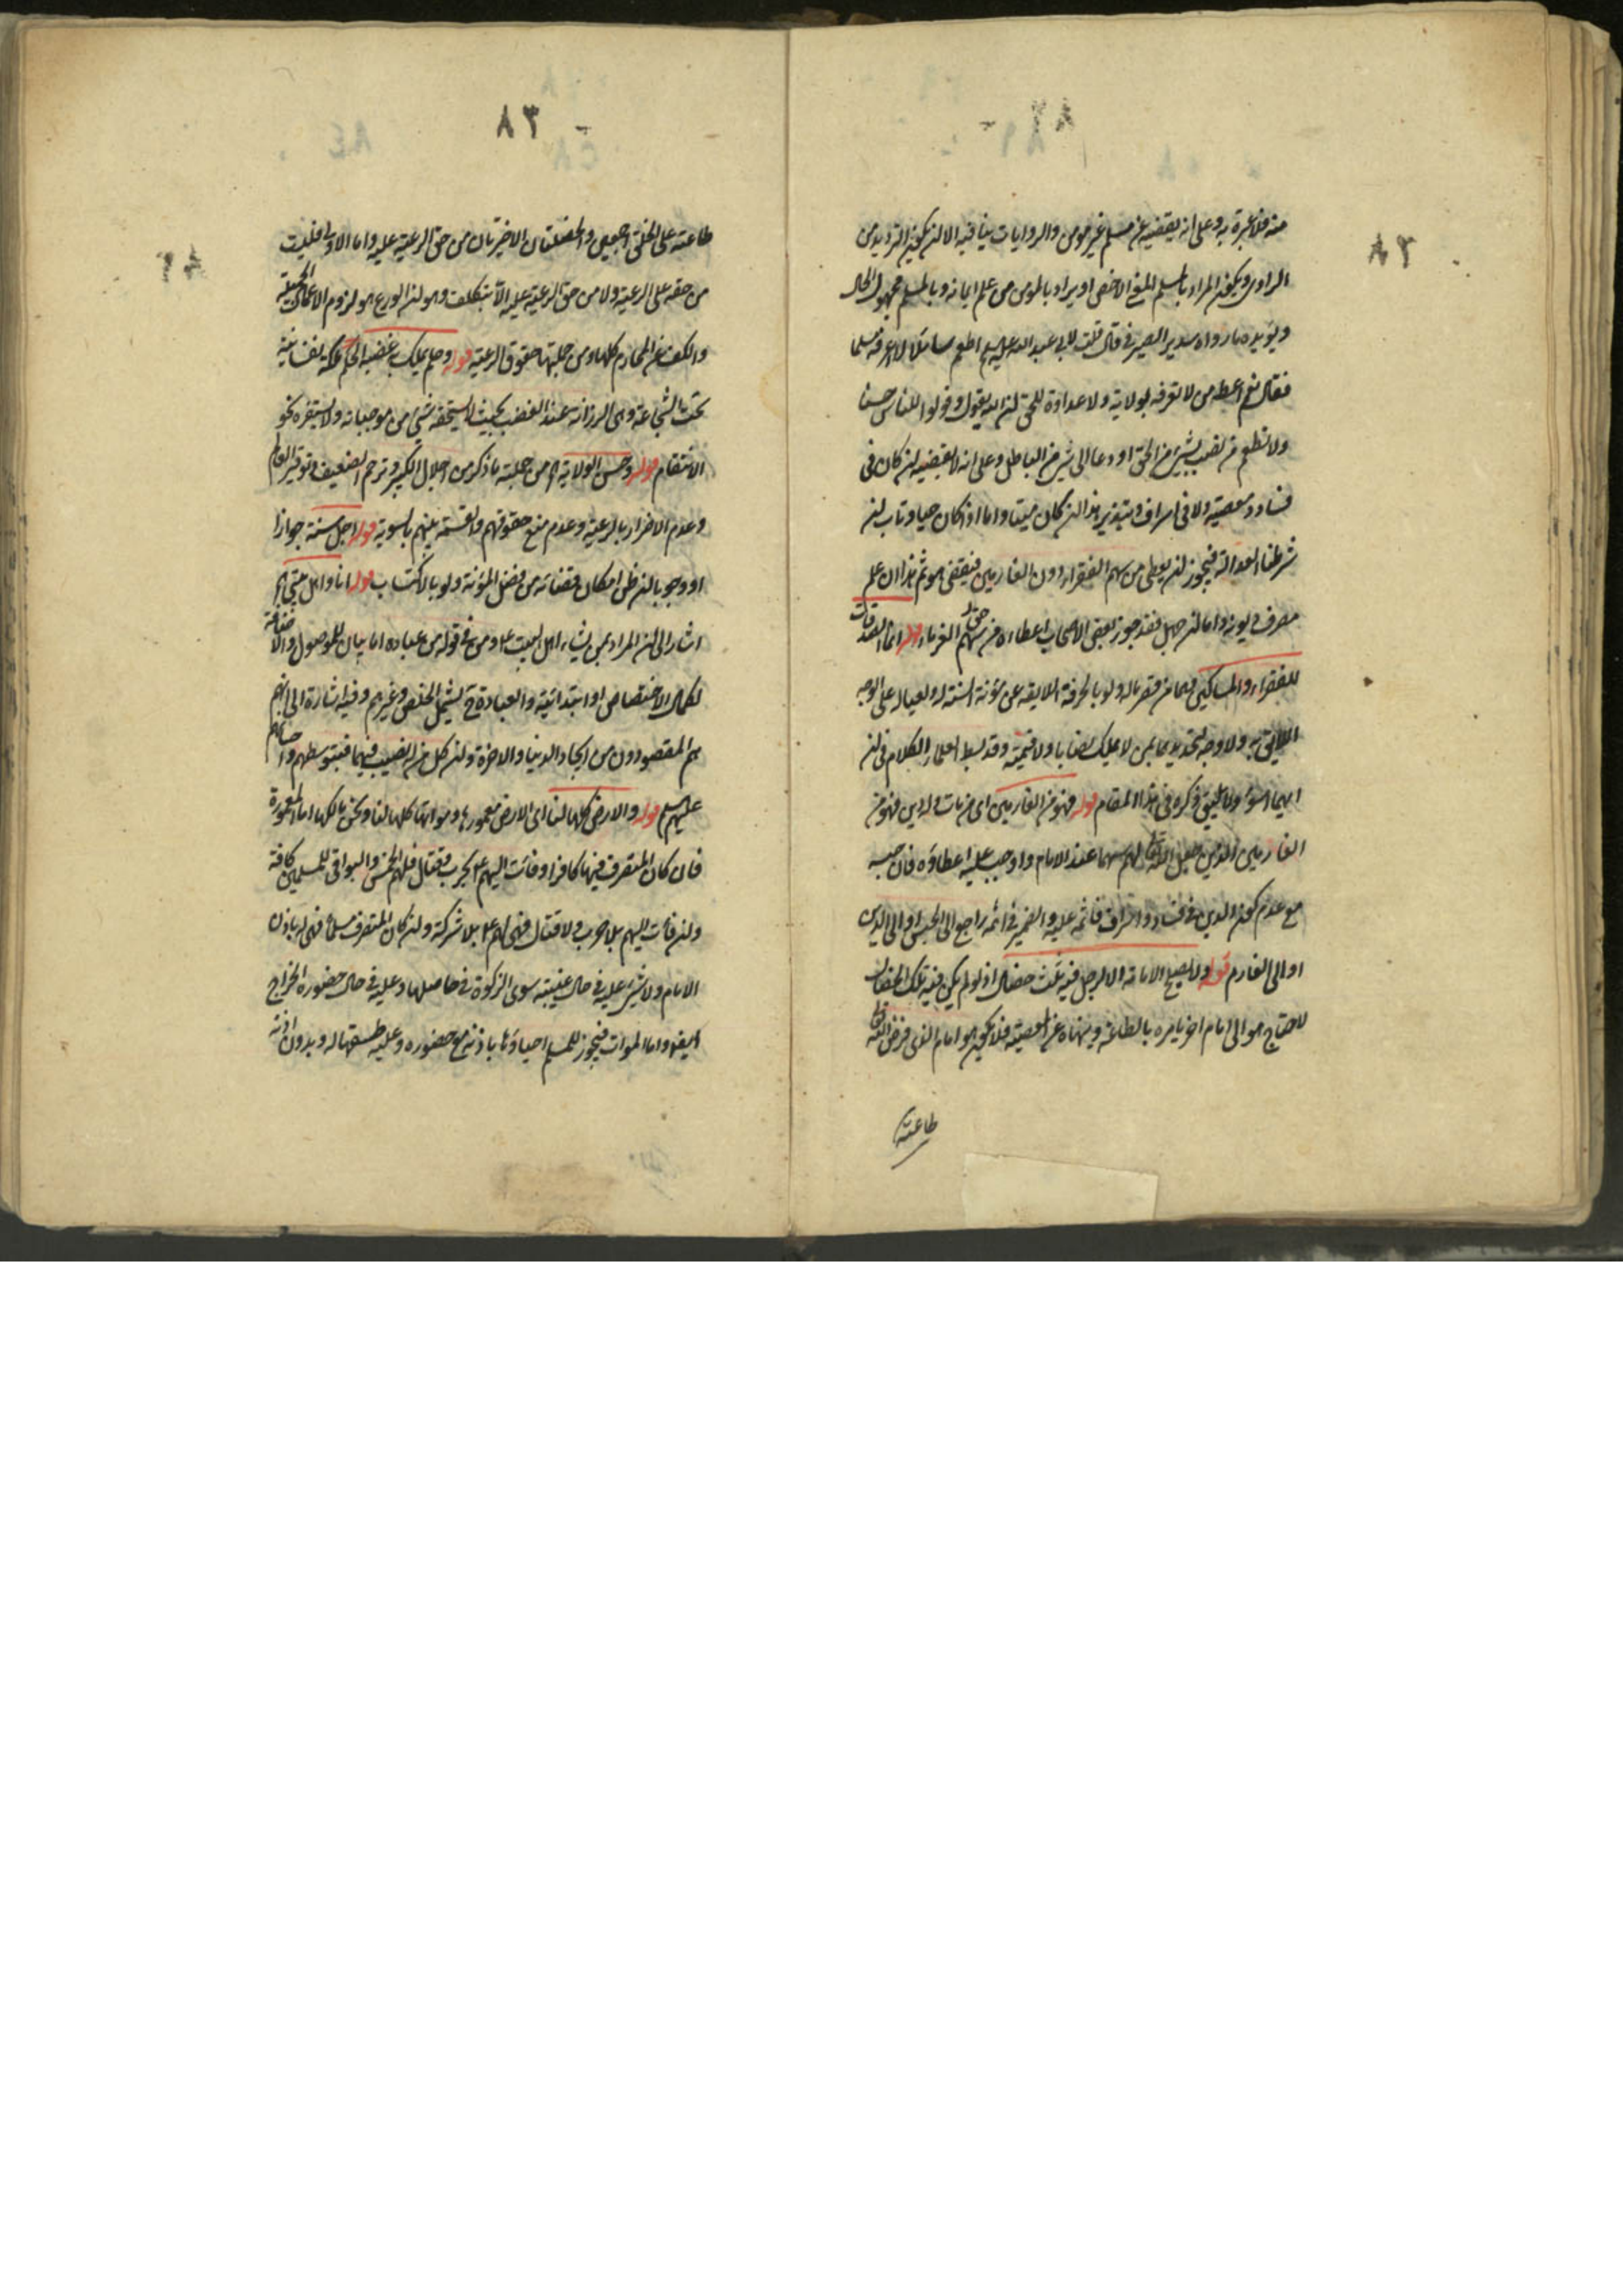 منه فلا عبرة به وعلى انه يقضيه عن مسلم غير مومن والروايات ينافيه الا لن يكون الترديد من
الراوى ويكون المراد بالمسلم المعنى الاخص او يراد بالمومن من علم ايمانه وبالمسلم مجهول الحال
ويؤيده ما رواه سدير الصيرفى قال قلت لابى عبد الله عليه السلم اطعم سائلا لا اعرفه مسلما
فقال نعم اعطه من لا تعرفه بولاية ولا عداوة للحق لن الله يقول وقولوا للناس حسنا
ولا تطعم من نصب لشئ من الحق او دعا الى شئ من الباطل وعلى انه لا يقضيه لن كان فى
فساد ومعصية ولا فى اسراف وتبذير هذا لن كان ميتا واما اذا كان حيا وتاب لن
شرطنا العدالة فيجوز لن يعطى من سهم الفقراء دون الغارمين فيقضى هو ثم هذا ان علم
مصرف ديونه واما لن جهل فقد جوز بعض الاصحاب اعطاءه من سهم الغرماء قوله انما الصدقات
للفقراء والمساكين هما من قصر ماله ولو بالحرفة اللايقة عن مؤنة السنة له ولعياله على الوجه
اللايق به ولا وجه لتحديدهما بمن لا يملك نصابا ولا قيمته وقد بسط العلماء الكلام فى لن
ايهما اسوء ولا يليق ذكره فى هذا المقام قوله فهو من الغارمين اى من مات وله دين فهو من
الغارمين الذين جعل الله تعالى لهم سهما عند الامام واوجب عليه اعطاؤه فان حبسه
مع عدم كون الدين فى فساد واسراف فاثمه عليه والضمير فى اثمه راجع الى الحبس او الى الدين
او الى الغارم قوله ولا يصلح الامامة الا لرجل فيه ثلث خصال اذ لو لم يكن فيه تلك الخصال
لاحتاج هو الى امام اخر يامره بالطاعة وينهاه عن المعصية فلا يكون هو امام الذى فرض الله تعالى
طاعته
٣٨
طاعته على الخلق اجمعين والخصلتان الاخيرتان من حق الرعية عليه واما الاولى فليست
من حقه على الرعية ولا من حق الرعية عليه الا بتكلف وهو لن الورع هو لزوم الاعمال الجميلة
والكف عن المحارم كلها ومن جملتها حقوق الرعية قوله وحلم يملك به غضبه الحلم ملكة نفسانية
تحت الشجاعة وهى الرزانة عند الغضب بحيث لا يستخفه شئ من موجباته ولا يستفزه نحو
الانتقام قوله وحسن الولاية اه من جملته ما ذكر من اجلال الكبير وترحم الضعيف وتوقير العالم
وعدم الاضرار بالرعية وعدم منع حقوقهم والقسمة بينهم بالسوية قوله اجل سنة جوازا
او وجوبا لن ظن امكان قضائه من فضل المؤنة ولو بالاكتساب قوله انا واهل بيتى اه
اشار الى لن المراد بمن يشاء اهل البيت ع ومن فى قوله من عباده اما بيان للموصول والاضافة
لكمال الاختصاص او ابتدائية والعبادة ح يشمل الخلص وغيرهم وفيه اشارة الى انهم
هم المقصودون من ايجاد الدنيا والاخرة ولن كل من له نصيب فيهما فبتوسطهم واحسانهم
عليهم السلم قوله والارض كلها لنا اى الارض معمورها ومواتها كلها لنا ونحن مالكها اما المعمورة
فان كان المتصرف فيها كافرا وفائت اليهم ع بحرب وقتال فلهم الخمس والبواقى للمسلمين كافة
ولن فائت اليهم بلا حرب ولا قتال فهى لهم ع بلا شركة ولن كان المتصرف مسلما فهى له باذن
الامام ولا شئ عليه فى حال غيبته سوى الزكوة فى حاصلها وعليه فى حال حضوره الخراج
ايضا واما الموات فيجوز للمسلم احياؤها باذنه مع حضوره وعليه طسقها له وبدون اذنه